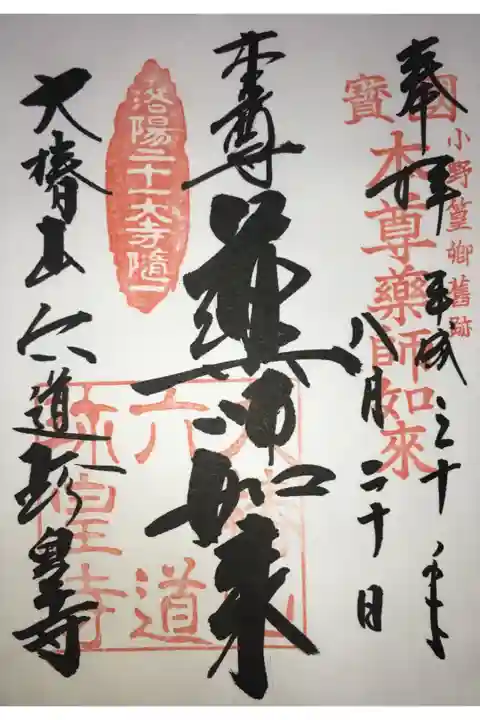 奉拝
平成三十年
八月二十日
小野篁卿舊跡
國寶
本尊薬師如來
本尊
薬師如来
洛陽二十一大寺隨一
大椿山
六道
珍皇寺
大椿山六道珍皇寺